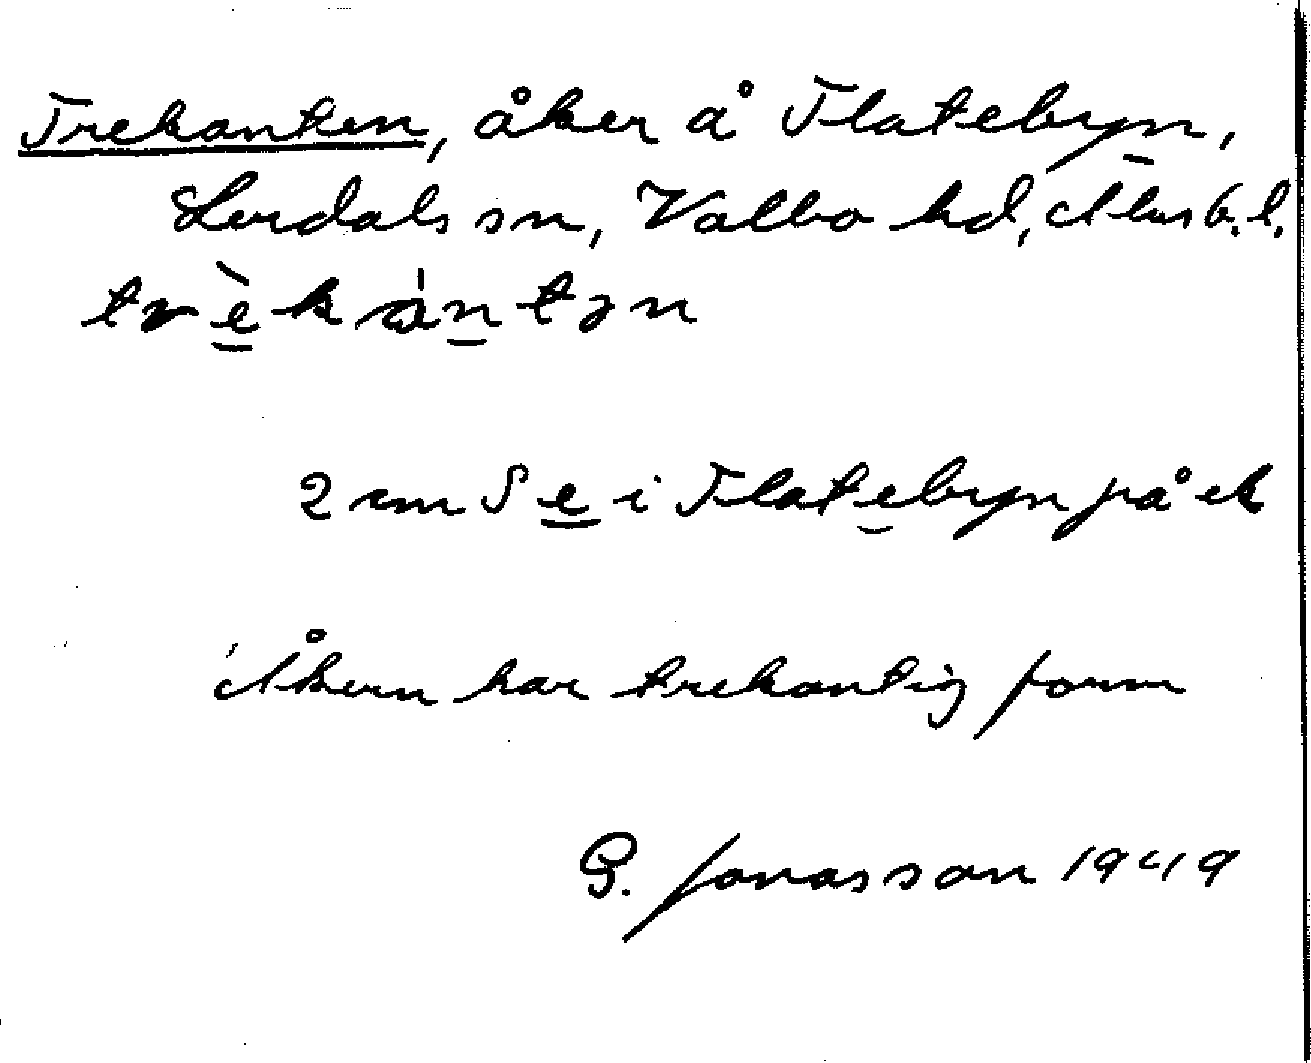 Trekanten, åker å Flatebyn,
Lerdals sn, Valbo hd, Älvsb. l.
trèkántən
2 cm S e i Flatebyn på ek
Åkern har trekantig form
G. Jonasson 1949